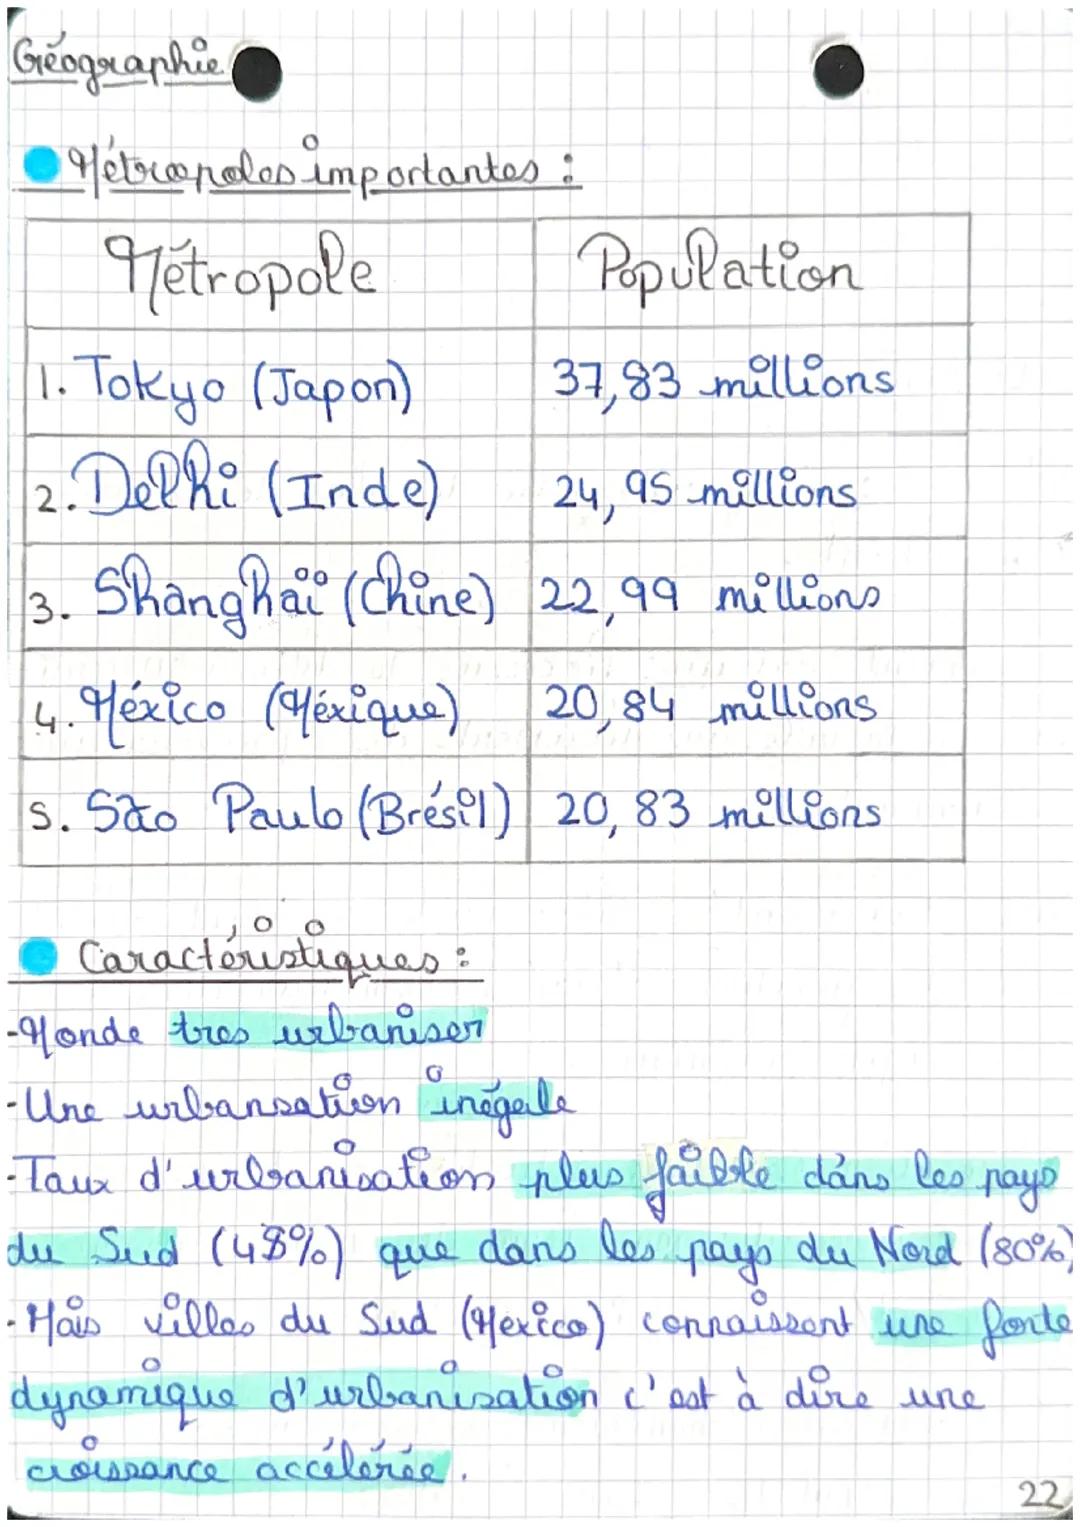 Géographie
Métropoles importantes :
Métropole Population
1. Tokyo (Japon) 37,83 millions
2. Delhi (Inde) 24,95 millions
3. Shanghaï (Chine) 22,99 millions
4. México (Méxique) 20,84 millions
5. São Paulo (Brésil) 20,83 millions
Caractéristiques :
-Monde tres urbaniser
-Une urbansation inégale
-Taux d'urbanisation plus faible dans les pays
du Sud (48%) que dans les pays du Nord (80%)
-Mais villes du Sud (Mexico) connaissent une forte
dynamique d'urbanisation c'est à dire une
croissance accélérée.
22